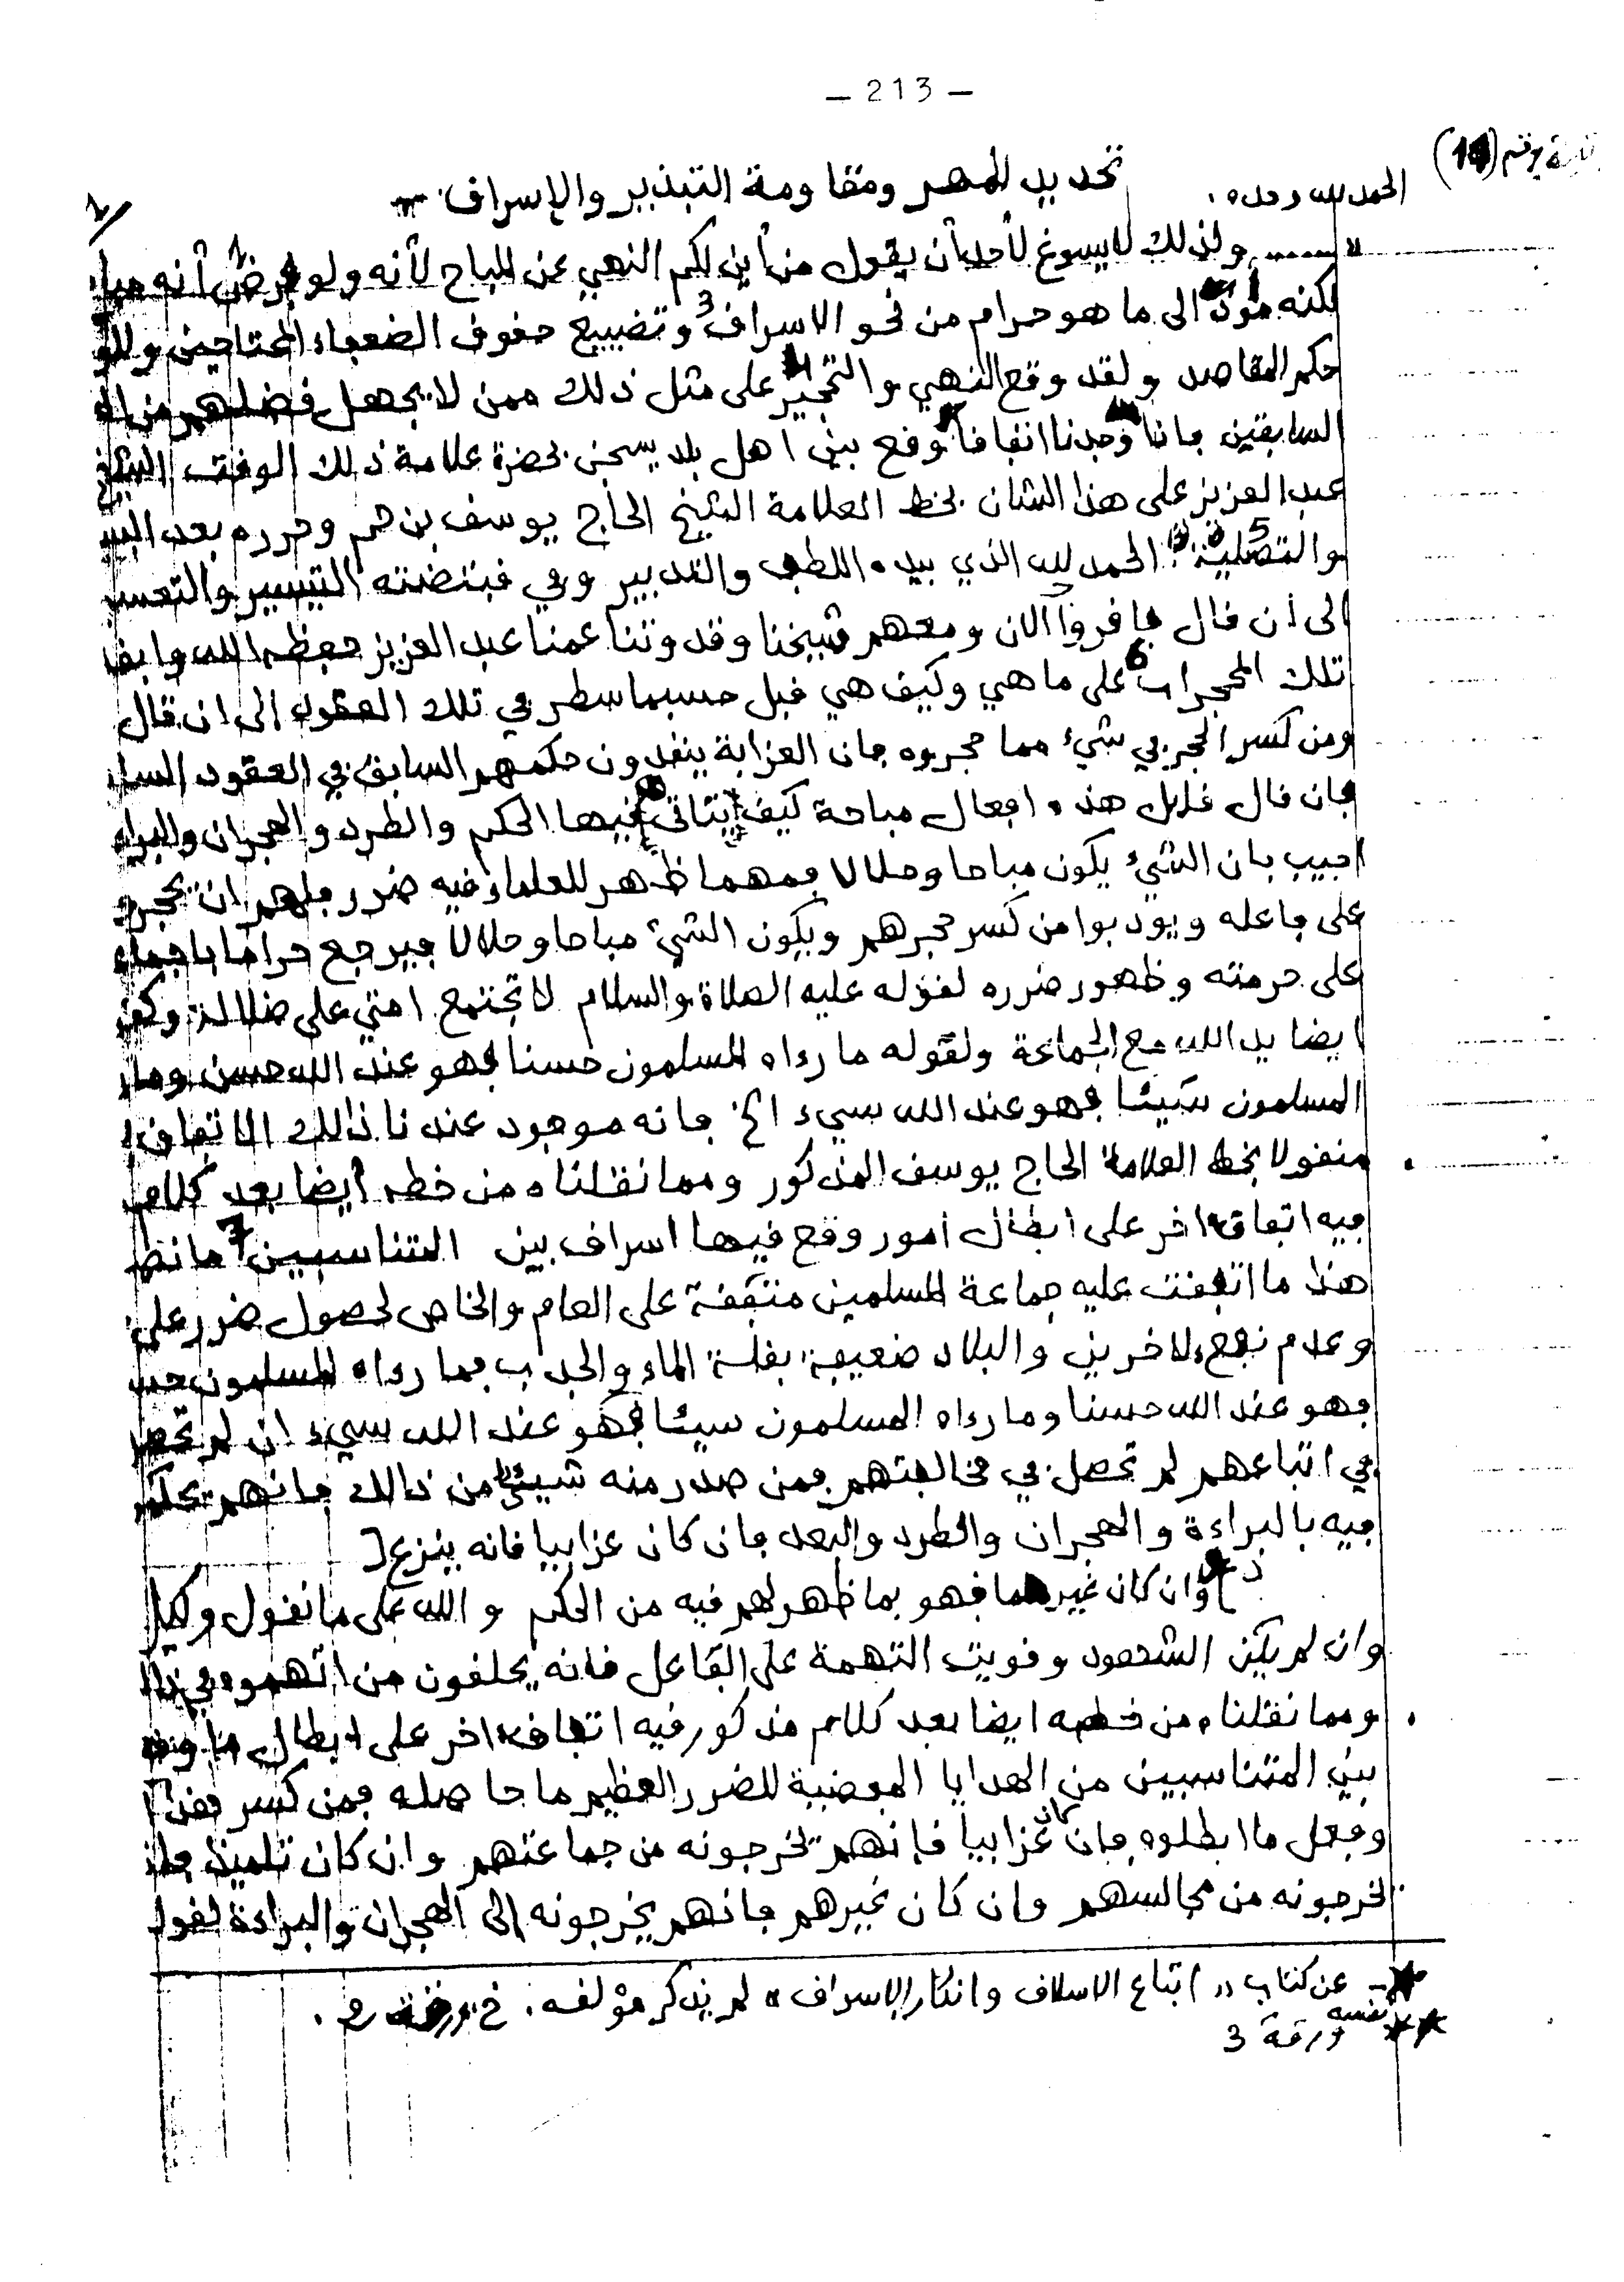 — 213 —
(14)
تحديد المهر ومقاومة التبذير والإسراف
الحمد لله وحده.
" ...... ولذلك لا يسوغ لأحد أن يقول من أين لكم النهي عن المباح لأنه ولو فرض أنه
لكنه الى ما هو حرام من نحو الاسراف 3 وتضييع حقوق الضعفاء المحتاجين
حكم المقاصد ولقد وقع النهي والتحجير على مثل ذلك ممن لا يجهل فضلهم
السابقين فانا وجدنا اتفاقا وقع بين اهل بلد يسجن بحضرة علامة ذلك الوقت الشيخ
عبد العزيز على هذا الشان بخط العلامة الشيخ الحاج يوسف بن حم وحرره بعد
والتصلية 5 الحمد لله الذي بيده اللطف والتدبير وفي قبضته التيسير والتعسير
الى أن قال فاقروا الان ومعهم شيخنا وقدوتنا عمنا عبد العزيز حفظه الله
تلك المحجرات 6 على ما هي وكيف هي قبل حسبما سطر في تلك العقود الى ان قال
ومن كسر الحجر في شيء مما حجروه فان العزابة ينفدون حكمهم السابق في العقود
فان قال قايل هذه افعال مباحة كيف يتاتى فيها الحكم والطرد والهجران
اجيب بان الشيء يكون مباحا وحلالا فمهما ظهر للعلماء فيه ضرر فلهم ان
على فاعله ويودبوا من كسر حجرهم ويكون الشيء مباحا وحلالا فيرجع حراما
على حرمته وظهور ضرره لقوله عليه الصلاة والسلام لا تجتمع امتي على ضلالة
ايضا يد الله مع الجماعة ولقوله ما رءاه المسلمون حسنا فهو عند الله حسن
المسلمون سيئا فهو عند الله سيء الخ فانه موجود عندنا ذالك الاتفاق
منقولا بخط العلامة الحاج يوسف المذكور ومما نقلناه من خطه أيضا بعد كلام
فيه اتفاق اخر على ابطال امور وقع فيها اسراف بين المتناسبين 7
هذا ما اتفقت عليه جماعة المسلمين متفقة على العام والخاص لحصول ضرر على
وعدم نفع لاخرين والبلاد ضعيفة بقلة الماء والجدب فما رءاه المسلمون
فهو عند الله حسنا وما رءاه المسلمون سيئا فهو عند الله سيء ان لم
في اتباعهم لم تحصل في مخالفتهم فمن صدر منه شيئ من ذالك فانهم
فيه بالبراءة والهجران والطرد والبعد فان كان عزابيا فانه ينزع [
] وان كان غيرهما فهو بما ظهر لهم فيه من الحكم والله على ما نقول وكيل
وان لم يكن الشهود وقويت التهمة على الفاعل فانه يحلفون من اتهموه
ومما نقلناه من خطه ايضا بعد كلام مذكور فيه اتفاق اخر على ابطال
بين المتناسبين من الهدايا المفضية للضرر العظيم ما حاصله فمن كسر
وفعل ما ابطلوه فان كان عزابيا فإنهم يخرجونه من جماعتهم وان كان تلميذا
يخرجونه من مجالسهم وان كان غيرهم فانهم يخرجونه الى الهجران والبراءة
★ - عن كتاب « اتباع الاسلاف وانكار الإسراف » لم يذكر مؤلفه. خ
★★ نفسه ورقة 3